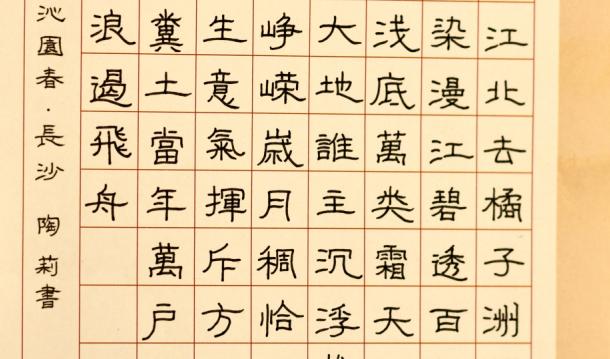 江北去橘子洲
染漫江碧透百
浅底萬类霜天
大地誰主沉浮
峥嵘歳月稠恰
生意氣揮斥方
糞土當年萬戶
浪遏飛舟
沁園春·長沙 陶莉書